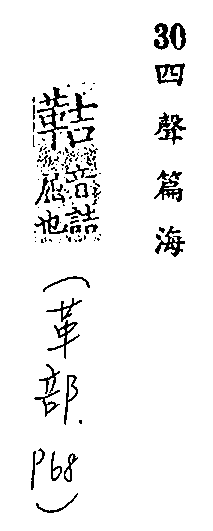 30 四聲篇海
鞊
音詰
也
(革部.
P68)